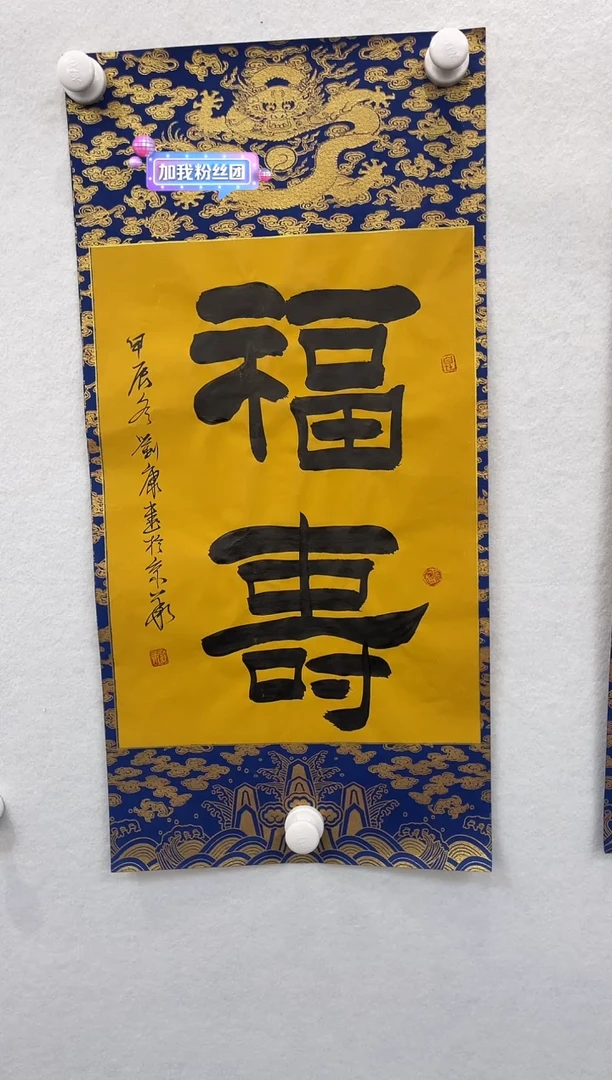 加我粉丝团
福
壽
甲辰冬劉康書於京華